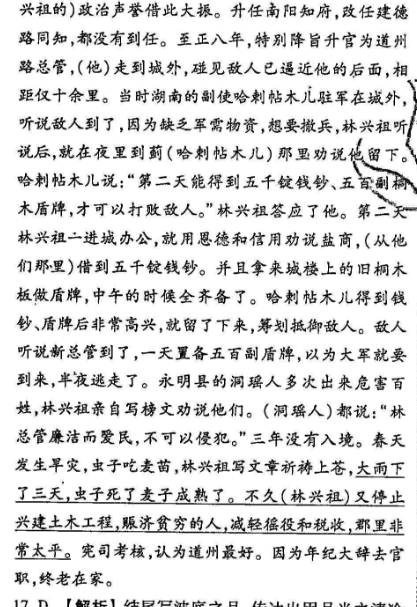 兴祖的)政治声誉借此大振。升任南阳知府,改任建德
路同知,都没有到任。至正八年,特别降旨升官为道州
路总管,(他)走到城外,碰见敌人已逼近他的后面,相
距仅十余里。当时湖南的副使哈剌帖木儿驻军在城外,
听说敌人到了,因为缺乏军需物资,想要撤兵,林兴祖听
说后,就在夜里到蓟(哈剌帖木儿)那里劝说他留下。
哈剌帖木儿说:“第二天能得到五千锭钱钞、五百副桐
木盾牌,才可以打败敌人。”林兴祖答应了他。第二天
林兴祖一进城办公,就用恩德和信用劝说盐商,(从他
们那里)借到五千锭钱钞。并且拿来城楼上的旧桐木
板做盾牌,中午的时候全齐备了。哈剌帖木儿得到钱
钞、盾牌后非常高兴,就留了下来,筹划抵御敌人。敌人
听说新总管到了,一天置备五百副盾牌,以为大军就要
到来,半夜逃走了。永明县的洞瑶人多次出来危害百
姓,林兴祖亲自写榜文劝说他们。(洞瑶人)都说:“林
总管廉洁而爱民,不可以侵犯。”三年没有入境。春天
发生旱灾,虫子吃麦苗,林兴祖写文章祈祷上苍,大雨下
了三天,虫子死了麦子成熟了。不久(林兴祖)又停止
兴建土木工程,赈济贫穷的人,减轻徭役和税收,郡里非
常太平。宪司考核,认为道州最好。因为年纪大辞去官
职,终老在家。
17. D 【解析】